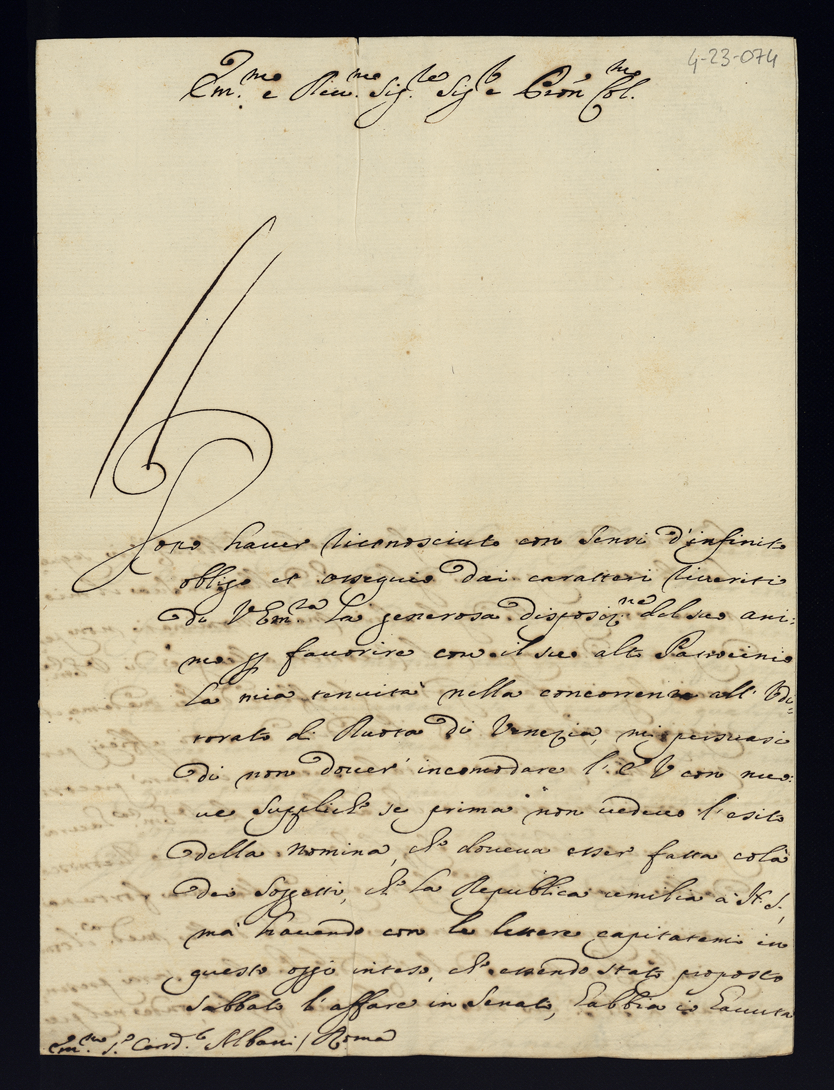 4-23-074
Em.mo e Rev.mo Sig.re Sig.r e Pron Col.mo
Dopo haver riconosciuto con sensi d'infinito
obligo et ossequio dai caratteri riveriti
di V Em.za la generosa disposiz.ne del suo ani:
mo p favorire con il suo alto Patrocinio
la mia tenuità nella concorrenza all' Udi:
torato di Ruota di Venezia, mi persuasi
di non dover incomodare l' E V con nuo:
ve suppliche se prima non vedevo l'esito
della nomina, che doveva esser fatta colà
dei Soggetti, che la Republica umilia à N. S.,
mà havendo con le lettere capitatemi in
questo oggi inteso, che essendo stato proposto
sabbato l'affare in Senato, habbia io havuta
Em.mo S.r Card.l Albani / Roma